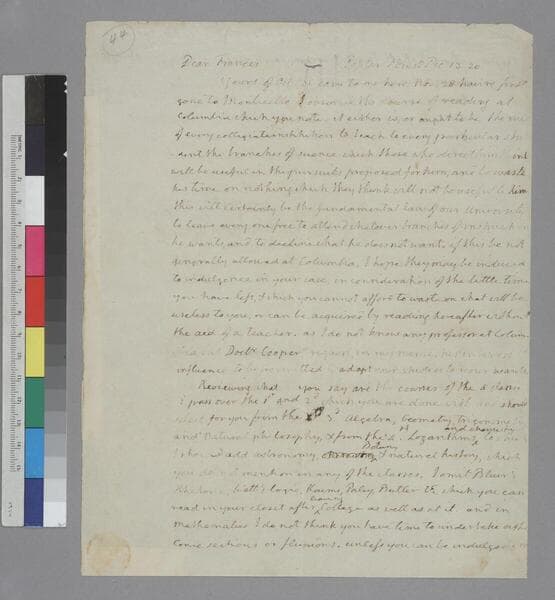 44
Dear Francis Poplar Forest Dec. 13. 20
Yours of Oct. 31 came to me here Nov. 28. having first
gone to Monticello. I observe the course of reading at
Columbia which you note. it either is, or ought to be the rule
of every collegiate institution to teach to every particular stu
dent the branches of science which those who direct him
will be useful in the pursuits proposed for him, and to waste
his time on nothing which they think will not be useful to him
this will certainly be the fundamental law of our University
to leave every one free to attend whatever branches of instruction
he wants, and to decline what he does not want. if this be not
generally allowed at Columbia, I hope they may be induced
to indulgence in your case, in consideration of the little time
you have left, & which you cannot afford to waste on what will be
useless to you, or can be acquired by reading hereafter without
the aid of a teacher. as I do not know any professor at Colum
bia but Doctr. Cooper request in my name his interest
influence to be permitted to adapt your studies to your wants.
Reviewing what you say are the courses of the 4. classes
I pass over the 1st. and 2d. which you are done with and should
select for you from the 3d. Algebra, Geometry, trigonometry
and Natural philosophy, & from the 4. Logarithms and chemistry to
I should add astronomy, Botany & natural history, which
you do not mention in any of the classes. I omit Blair's
Rhetoric, Watt's logic, Kaims, Paley, Butler &c. which you can
read in your closet after leaving College as well as at it. and in
mathematics I do not think you have time to undertake either
Conic sections or fluxions. unless you can be indulged